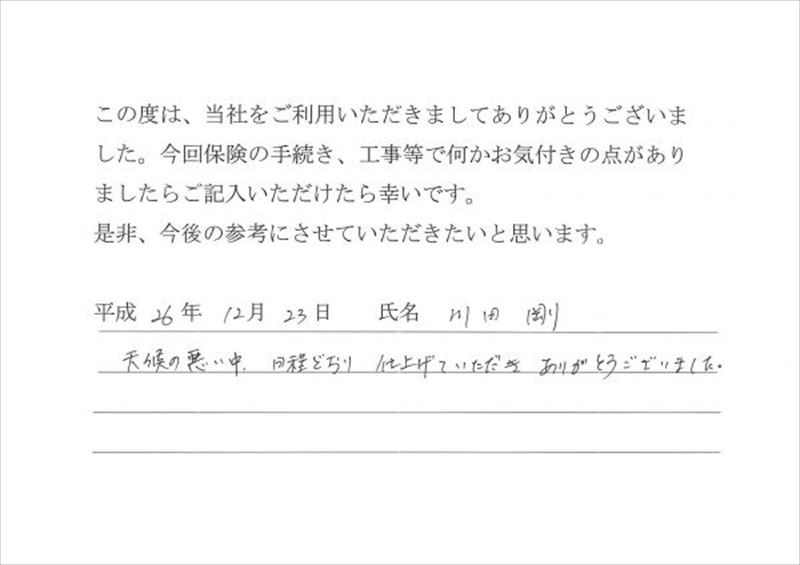 この度は、当社をご利用いただきましてありがとうございま
した。今回保険の手続き、工事等で何かお気付きの点があり
ましたらご記入いただけたら幸いです。
是非、今後の参考にさせていただきたいと思います。
平成 26年 12月 23日 氏名 川田 剛
天候の悪い中、日程どおり 仕上げていただき ありがとうございました。